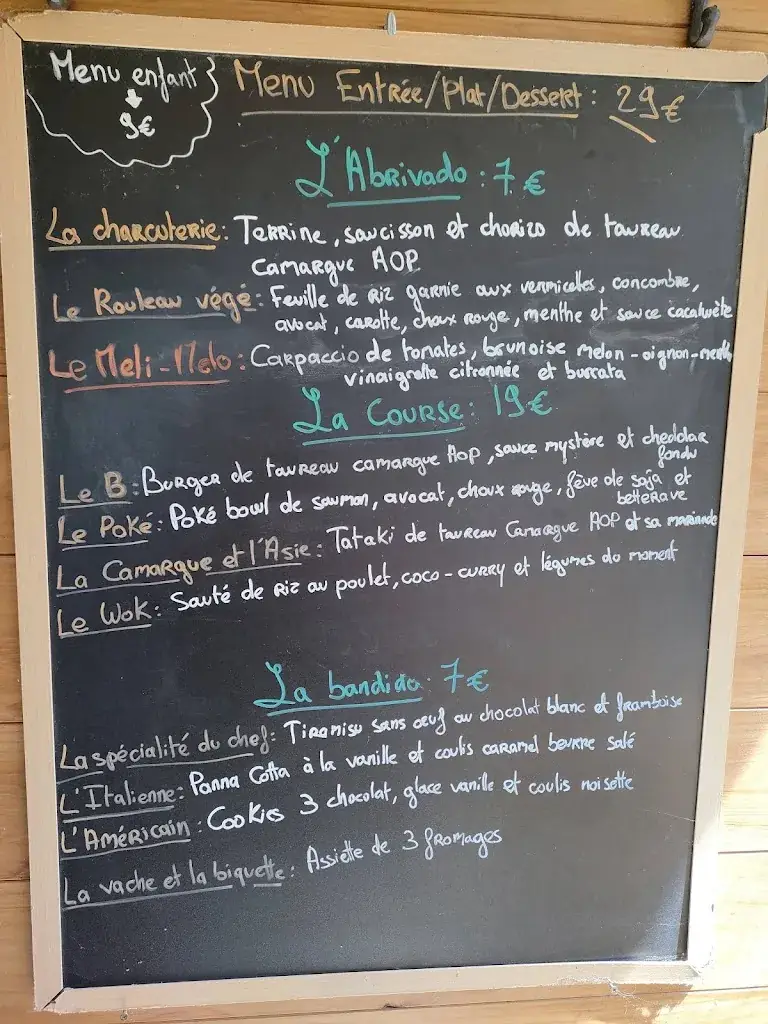 Menu enfant
9€
Menu Entrée/Plat/Dessert : 29€
L'Abrivado : 7 €
La charcuterie : Terrine, saucisson et chorizo de taureau
Camargue AOP
Le Rouleau végé : Feuille de riz garnie aux vermicelles, concombre,
avocat, carotte, choux rouge, menthe et sauce cacahuète
Le Meli-Melo : Carpaccio de tomates, brunoise melon-oignon-menthe
vinaigrette citronnée et burrata
La Course : 19€
Le B : Burger de taureau camargue Aop, sauce mystère et cheddar
fondu
Le Poké : Poké bowl de saumon, avocat, choux rouge, fève de soja et
betterave
La Camargue et l'Asie : Tataki de taureau Camargue AOP et sa marinade
Le Wok : Sauté de riz au poulet, coco-curry et légumes du moment
La bandido : 7€
La spécialité du chef : Tiramisu sans œuf au chocolat blanc et framboise
L'Italienne : Panna Cotta à la vanille et coulis caramel beurre salé
L'Américain : Cookies 3 chocolat, glace vanille et coulis noisette
La vache et la biquette : Assiette de 3 fromages